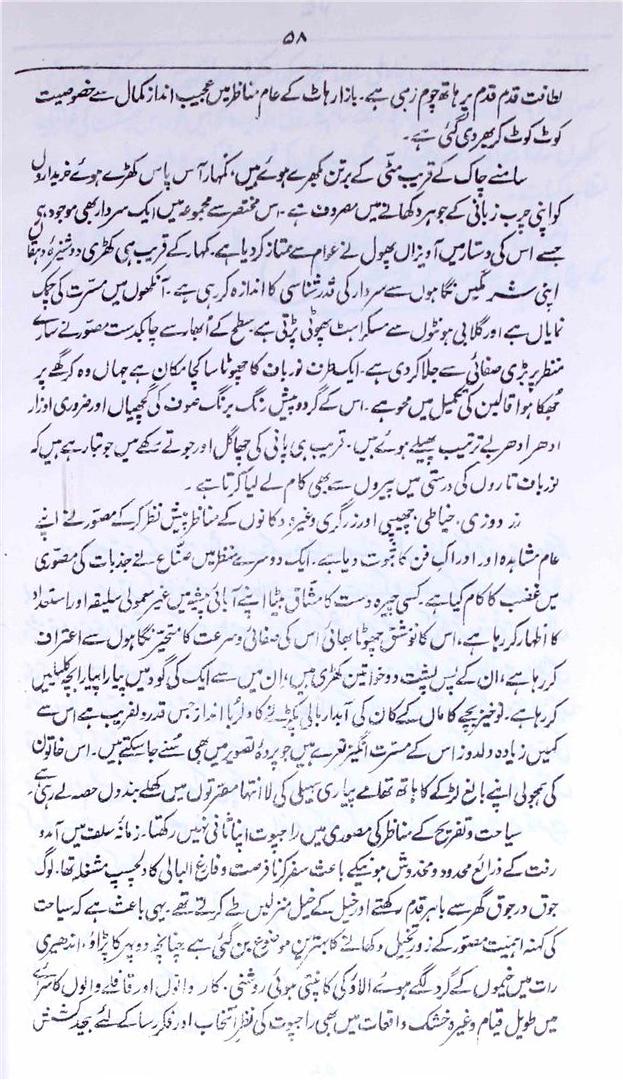 ۵۸
لطافت قدم قدم پر ہاتھ چوم رہی ہے۔ بازار ہاٹ کے عام مناظر میں عجیب انداز کمال سے خصوصیت
کوٹ کوٹ کر بھر دی گئی ہے۔
سامنے چاک کے قریب مٹی کے برتن بکھرے ہوئے ہیں، کمہار آس پاس کھڑے ہوئے خریداروں
کو اپنی چرب زبانی کے جوہر دکھانے میں مصروف ہے۔ اس مختصر سے مجموعہ میں ایک سردار بھی موجود ہیں
جسے اس کی دستار میں آویزاں پھول نے عوام سے ممتاز کر دیا ہے۔ کمہار کے قریب ہی کھڑی دوشیزہ دہقان
اپنی شرمگیں نگاہوں سے سردار کی قدر شناسی کا اندازہ کر رہی ہے۔ آنکھوں میں مسرت کی چمک
نمایاں ہے اور گلابی ہونٹوں سے مسکراہٹ پھوٹی پڑتی ہے سطح کے اُبھار سے چابکدست مصور نے سارے
منظر پر بڑی صفائی سے جلا کر دی ہے۔ ایک طرف نور باف کا چھوٹا سا کچا مکان ہے جہاں وہ کرگھے پر
جُھکا ہوا قالین کی تکمیل میں محو ہے۔ اس کے گرد و پیش رنگ برنگ صوف کی لچھیاں اور ضروری اوزار
ادھر ادھر بے ترتیب پھیلے ہوئے ہیں۔ قریب ہی پانی کی چھاگل اور جوتے رکھے ہیں جو بتا رہے ہیں کہ
نور باف تاروں کی درستی میں پیروں سے بھی کام لے لیا کرتا ہے۔
زر دوزی، خیاطی، چھیپی اور زرگری وغیرہ دکانوں کے مناظر پیش نظر کر کے مصور نے اپنے
عام مشاہدہ اور ادراک فن کا ثبوت دیا ہے۔ ایک دوسرے منظر میں صناع نے جذبات کی مصوری
میں غضب کا کام کیا ہے۔ کسی چیرہ دست کا مشاق بیٹا اپنے آبائی پیشہ میں غیر معمولی سلیقہ اور استعداد
کا اظہار کر رہا ہے، اس کا نو مشق چھوٹا بھائی اس کی صفائی و سرعت کا متحیر نگاہوں سے اعتراف
کر رہا ہے، ان کے پس پشت دو خواتین کھڑی ہیں، ان میں سے ایک کی گود میں پیارا پیارا بچہ کلیلیں
کر رہا ہے۔ نوخیز بچے کا ماں کے کان کی آبدار بالی پکڑنے کا دلربا انداز جس قدر دلفریب ہے اس سے
کہیں زیادہ دلدوز اس کے مسرت انگیز نعرے ہیں جو پردۂ تصویر میں بھی سُنے جا سکتے ہیں۔ اس خاتون
کی ہمجولی اپنے بالغ لڑکے کا ہاتھ تھامے پیاری سہیلی کی لا انتہا مسرتوں میں کھلے بندوں حصہ لے رہی ہے۔
سیاحت و تفریح کے مناظر کی مصوری میں راجپوت اپنا ثانی نہیں رکھتا۔ زمانۂ سلف میں آمد و
رفت کے ذرائع محدود و مخدوش ہونیکے باعث سفر کرنا فرصت و فارغ البالی کا دلچسپ مشغلہ تھا۔ لوگ
جوق در جوق گھر سے باہر قدم رکھتے اور خیل کے خیل منزلیں طے کرتے تھے۔ یہی باعث ہے کہ سیاحت
کی کہنہ اہمیت مصور کے زور تخیل دکھانے کا بہترین موضوع بن گئی ہے چنانچہ دوپہر کا پڑاؤ، اندھیری
رات میں خیموں کے گرد لگے ہوئے الاؤ کی کانپتی ہوئی روشنی، کاروانوں اور قافلے والوں کا سرائے
میں طویل قیام وغیرہ خشک واقعات میں بھی راجپوت کی نظر انتخاب اور فکر رسا کے لئے بیحد کشش